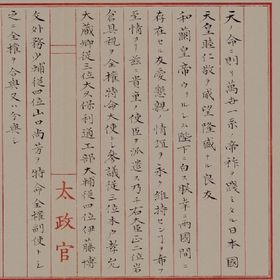 天命ニ則リ萬世一系ノ帝祚ヲ踐ミタル日本國
天皇睦仁敬テ威望隆盛ナル良友
和蘭皇帝ウィルレム陛下ニ白ス朕幸ニ兩國間ニ
存在セル友愛懇親ノ情誼ヲ永ク維持センヿヲ希フ
至情ヨリ茲ニ貴重ノ使臣ヲ派遣ス乃チ右大臣正二位岩
倉具視ヲ全權特命大使トシ參議從三位木戸孝允
大藏卿從三位大久保利通工部大輔從四位伊藤博
太政官
文外務少輔從四位山口尚芳ヲ特命全權副使トシ
之ニ全權ヲ合與又ハ分與シ